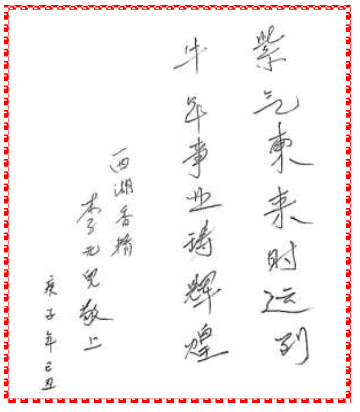 紫气東来时运到
牛年事业铸辉煌
西湖香犒
李元兒敬上
庚子年已丑